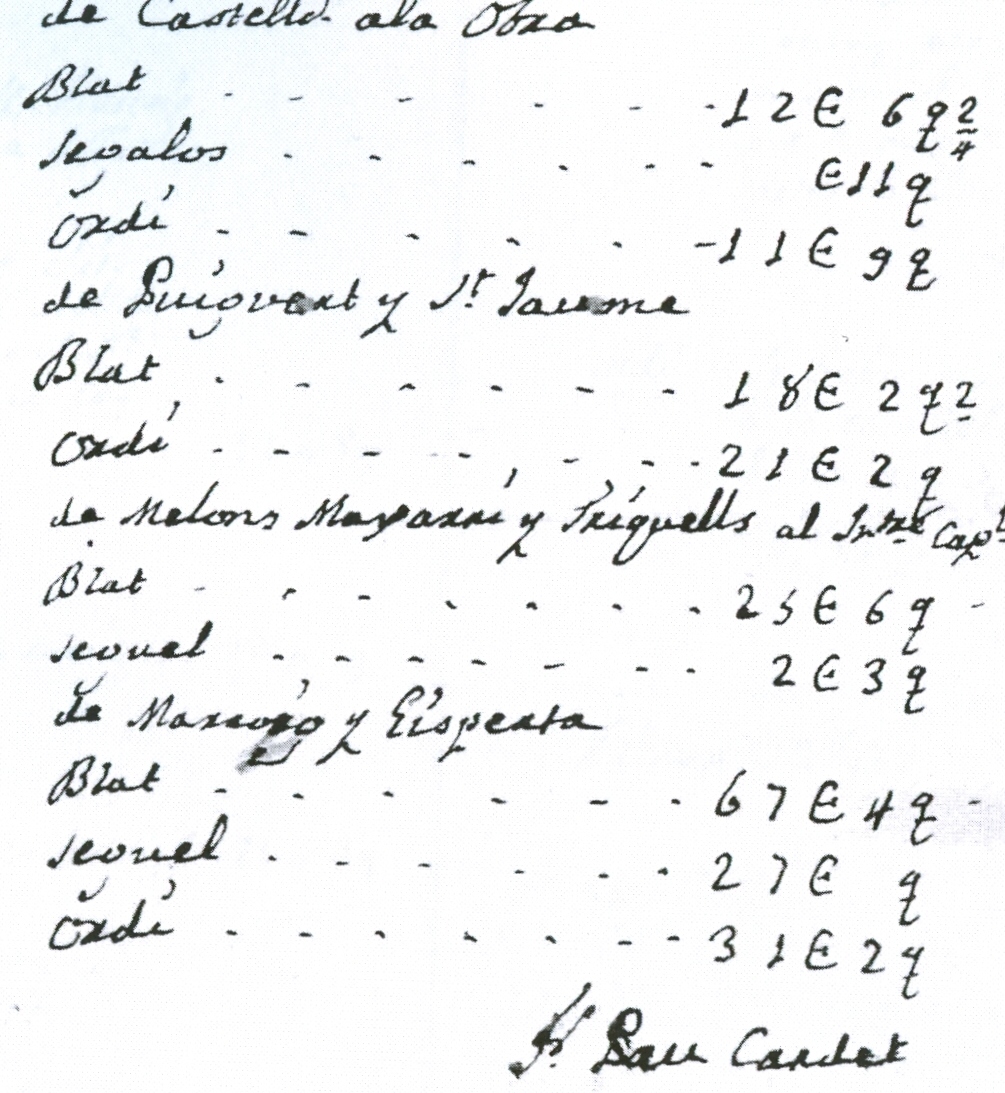 de Castelló ala Obra
Blat - - - - - - 12 E 6 q 2/4
segalos - - - - - - - E 11 q
Ordi - - - - - - 11 E 9 q
de Puigvert y St. Jaume
Blat - - - - - - - 18 E 2 q 2
Ordi - - - - - - - - 21 E 2 q
de Melons Mayarri y Triquells al Cap
Blat - - - - - - - 25 E 6 q -
seguel - - - - - - - - 2 E 3 q
de y
Blat - - - - - - 67 E 4 q -
seguel - - - - - - 27 E q
Ordi - - - - - - - - 31 E 2 q
Pau Cardet